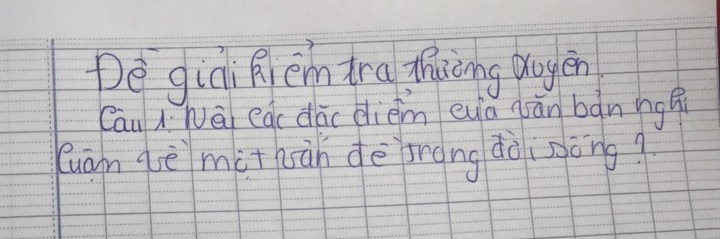 Đề giải kiểm tra thường xuyên
Câu 1: Nêu các đặc điểm của văn bản nghị
luận về một vấn đề trong đời sống?